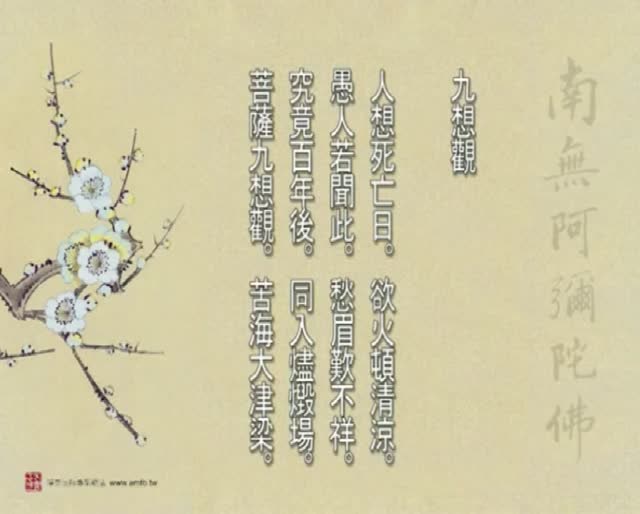 南無阿彌陀佛
九想觀
人想死亡日。欲火頓清涼。
愚人若聞此。愁眉歎不祥。
究竟百年後。同入燼燬場。
菩薩九想觀。苦海大津梁。
www.amtb.tw